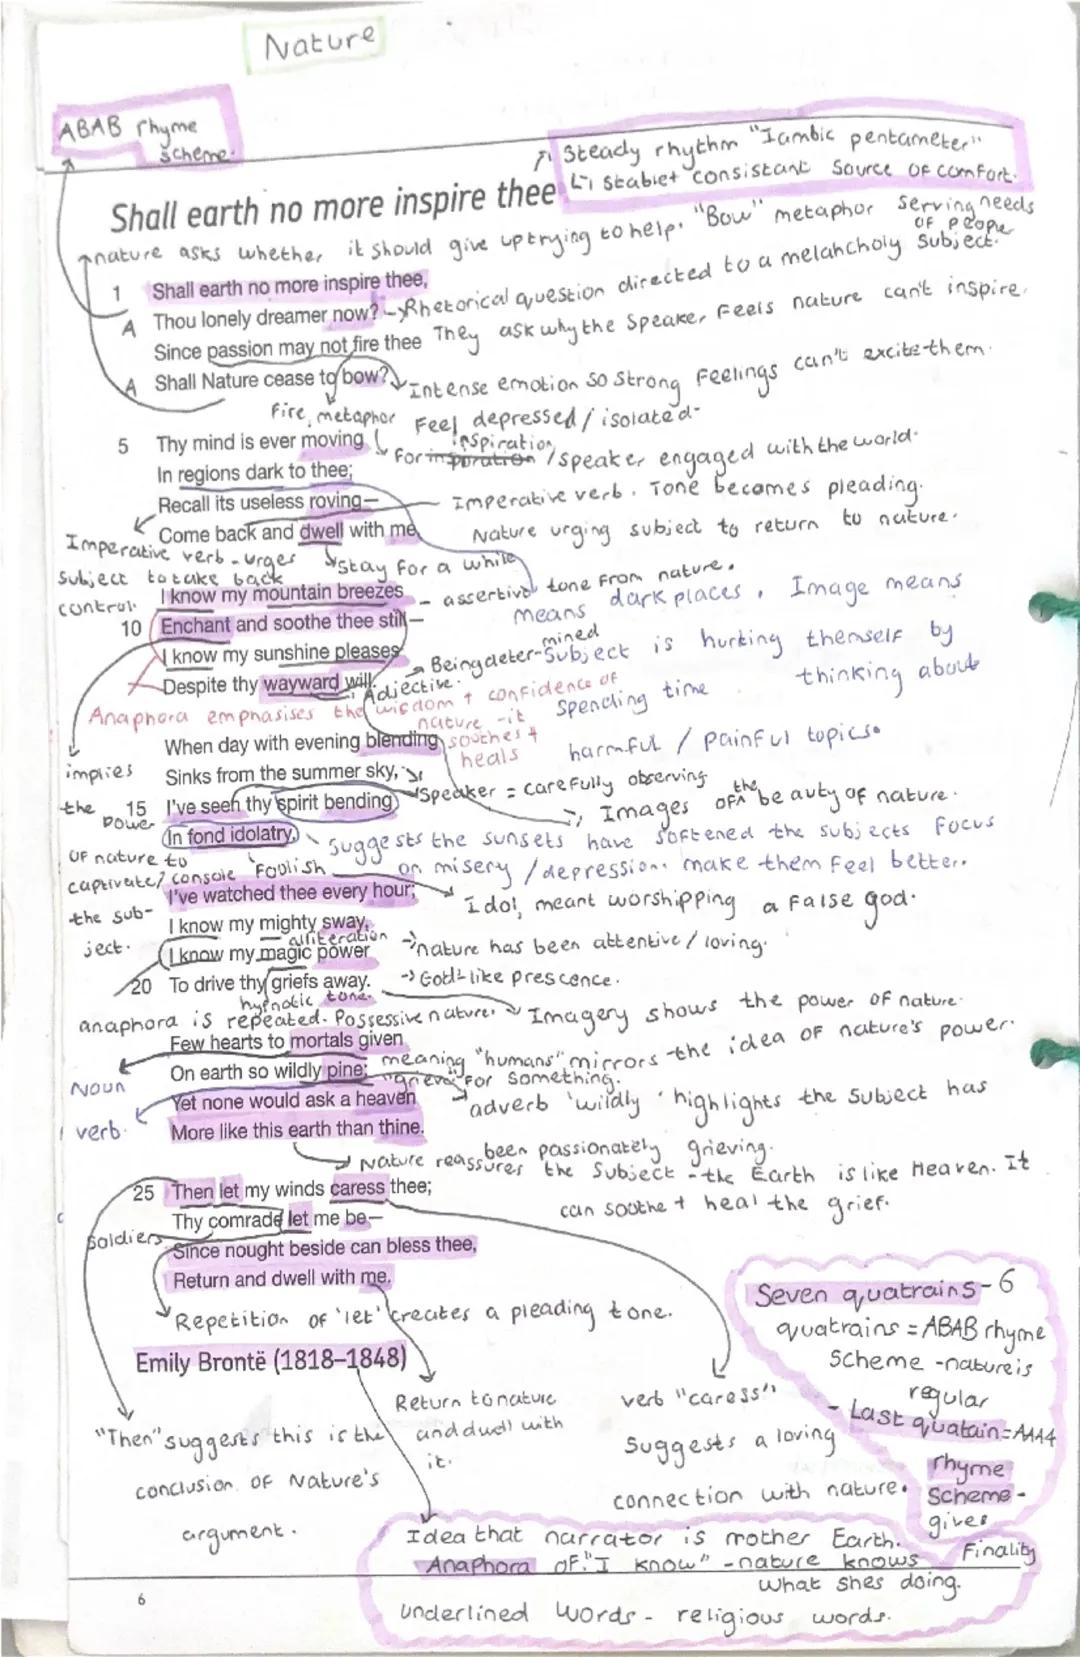 Nature
ABAB rhyme
scheme.
Steady rhythm "Iambic pentameter"
↳ stable + consistant source of comfort.
Shall earth no more inspire thee
nature asks whether it should give up trying to help. "Bow" metaphor serving needs
of people
1 Shall earth no more inspire thee,
A Thou lonely dreamer now? → Rhetorical question directed to a melancholy subject.
Since passion may not fire thee They ask why the speaker feels nature can't inspire.
A Shall Nature cease to bow? Intense emotion so strong feelings can't excite them.
Fire, metaphor Feel depressed / isolated.
5 Thy mind is ever moving
for inspiration / speaker engaged with the world.
In regions dark to thee;
Recall its useless roving— Imperative verb. Tone becomes pleading.
Come back and dwell with me. Nature urging subject to return to nature.
Imperative verb - urges
subject to take back
control.
stay for a while
I know my mountain breezes - assertive tone from nature.
means dark places. Image means
10 Enchant and soothe thee still—
subject is hurting themself by
I know my sunshine pleases
Being determined
thinking about
Despite thy wayward will.
Adjective.
spending time
Anaphora emphasises the wisdom + confidence of
nature - it
soothes +
heals
harmful / painful topics.
When day with evening blending
implies
the
power
of nature to
captivate / console
the subject.
Sinks from the summer sky,
Speaker = carefully observing
15 I've seen thy spirit bending
Images of the beauty of nature.
In fond idolatry.
Suggests the sunsets have softened the subjects focus
on misery / depression. make them feel better.
Foolish
I've watched thee every hour;
Idol, meant worshipping a false god.
I know my mighty sway,
alliteration
→ nature has been attentive / loving.
I know my magic power
20 To drive thy griefs away. → God-like prescence.
hypnotic tone.
Imagery shows the power of nature.
anaphora is repeated. Possessive nature.
Few hearts to mortals given
meaning "humans" mirrors the idea of nature's power.
Noun
On earth so wildly pine;
grieve for something.
Yet none would ask a heaven
adverb 'wildly' highlights the subject has
been passionately grieving.
verb.
More like this earth than thine.
Nature reassures the subject - the Earth is like Heaven. It
can soothe + heal the grief.
25 Then let my winds caress thee;
Thy comrade let me be—
Soldiers
Since nought beside can bless thee,
Return and dwell with me.
Repetition of 'let' creates a pleading tone.
Emily Brontë (1818–1848)
Seven quatrains - 6
quatrains = ABAB rhyme
scheme - nature is
regular
- Last quatain = AAAA
rhyme
scheme -
gives
Finality
"Then" suggests this is the
conclusion of Nature's
argument.
Return to nature
and dwell with
it.
verb "caress"
suggests a loving
connection with nature.
Idea that narrator is mother Earth.
Anaphora of "I know" - nature knows
what shes doing.
Underlined words - religious words.
6